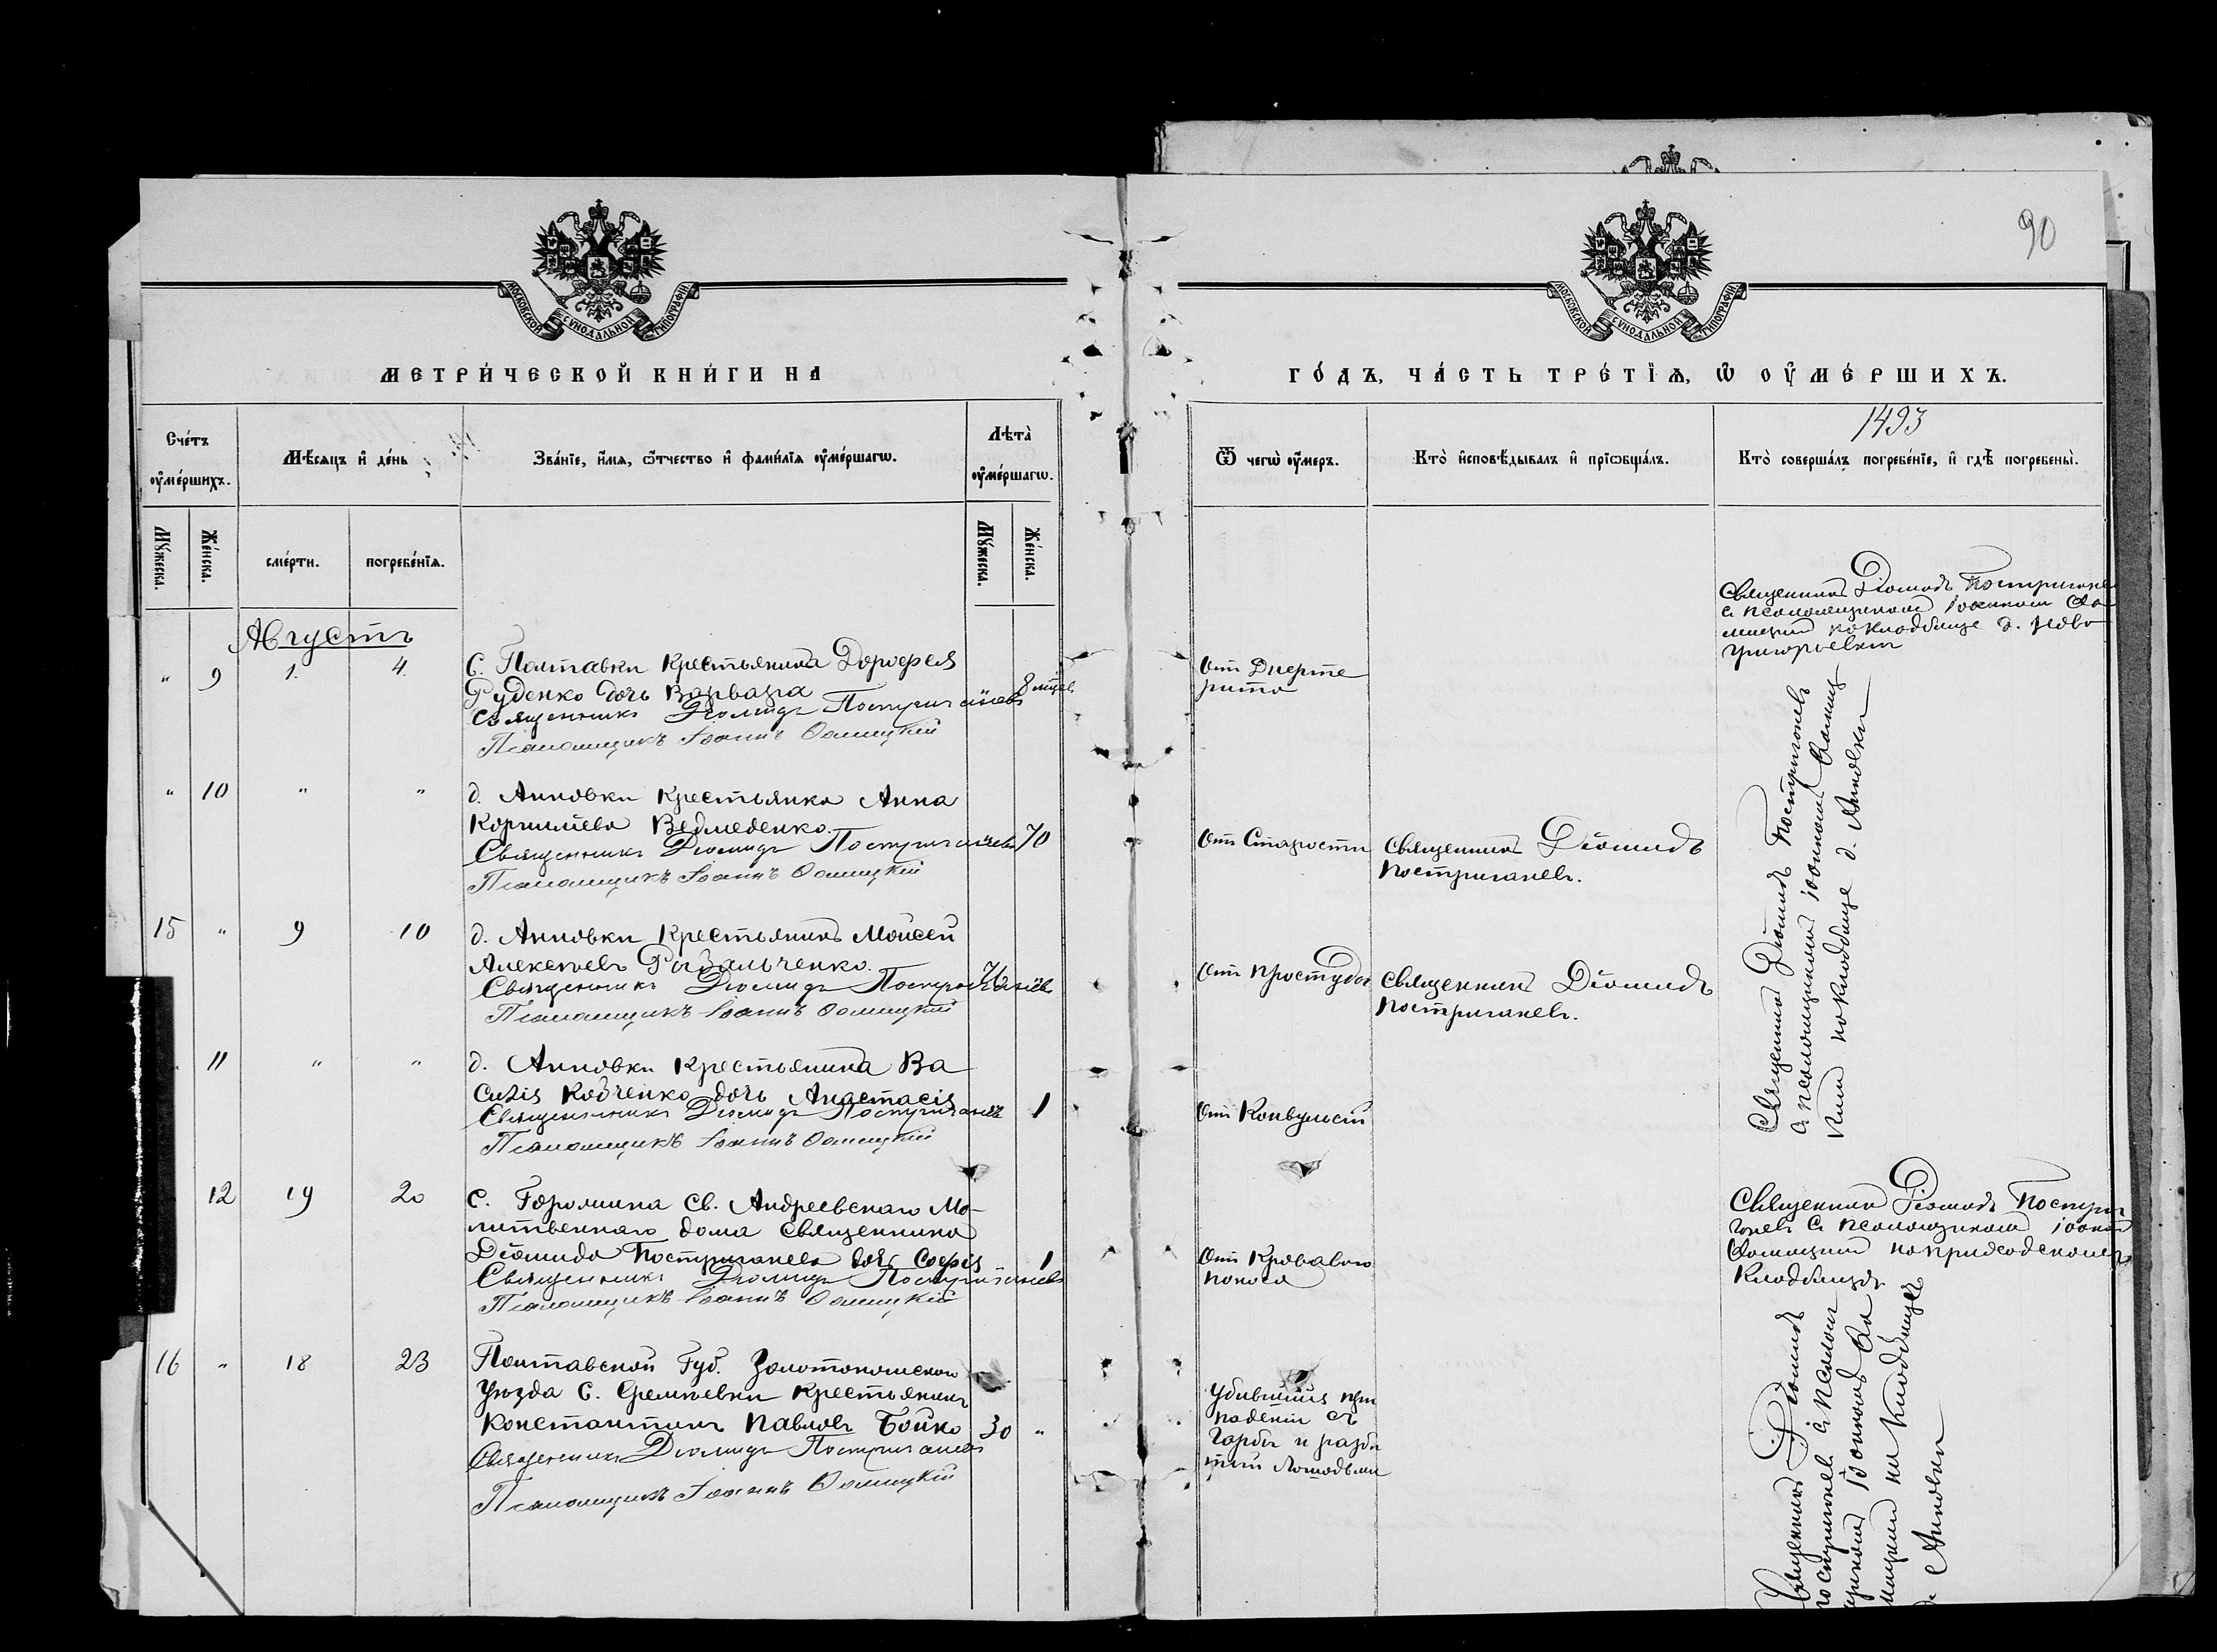 90
МОСКОВСКОЙ СѴНОДАЛЬНОЙ ТИПОГРАФІИ
МОСКОВСКОЙ СѴНОДАЛЬНОЙ ТИПОГРАФІИ
МЕТРИ́ЧЕСКОЙ КНИ́ГИ НА
ГО́ДЪ, ЧА́СТЬ ТРЕ́ТІѦ, Ѽ ОУ҆МЕ́РШИХЪ.
1493
Сче́тъ
оу҆ме́ршихъ.
Мѣ́сяцъ и҆ де́нь
Зва́нїе, и҆́мѧ, ѻ҆́тчество и҆ фами́лїѧ оу҆ме́ршагѡ.
Лѣта̀
оу҆ме́ршагѡ.
Ѿ чегѡ̀ оу҆́мер.
Кто̀ и҆сповѣ́дывалъ и҆ прїѡбща́лъ.
Кто̀ соверша́лъ погребе́нїе, и҆ гдѣ̀ погребены̀.
Мꙋ́жеска.
Же́нска.
сме́рти.
погребе́нїѧ.
Мꙋ́жеска.
Же́нска.
Августъ
" 9 1. 4.
С. Полтавки Крестьянина Дорофея
Руденко дочь Варвара
8 мцев
Священникъ Діомидъ Постриганевъ
Псаломщикъ Іоаннъ Фомицкій
От Диерте
рита
Священник Діомидъ Постриганев
с псаломщиком Іоанном Фо
мицким на кладбище д. Ново
григорьевки
" 10 " "
д. Анновки Крестьянка Анна
Корнилиева Ведмеденко.
70
Священникъ Діомидъ Постриганевъ
Псаломщикъ Іоаннъ Фомицкій
От Старости
Священник Діомидъ
Постриганевъ.
Священник Діомидъ Постриганевъ
с псаломщиком Іоанном Фомиц
ким на кладбище д. Анновки
15 " 9 10
д. Анновки Крестьянинъ Моисей
Алексеевъ Рыбальченко.
Священникъ Діомидъ Постриганевъ
Псаломщикъ Іоаннъ Фомицкій
От простуды
Священник Діомидъ
Постриганевъ.
11 " "
д. Анновки Крестьянина Ва
силія Кобченко дочь Анастасія
1
Священникъ Діомидъ Постриганевъ
Псаломщикъ Іоаннъ Фомицкій
От Конвульсій
12 19 20
С. Горожина Св. Андреевскаго Мо-
литвеннаго дома Священника
Діомида Постриганева дочь Софія
1
Священникъ Діомидъ Постриганевъ
Псаломщикъ Іоаннъ Фомицкій
От Кроваваго
поноса
Священник Діомидъ Постри
ганевъ с псаломщиком Іоанном
Фомицким на приходском
Кладбище
16 " 18 23
Полтавской Губ. Золотоношскаго
Уезда С. Еремеевки Крестьянинъ
Константинъ Павловъ Бойко
30 "
Священникъ Діомидъ Постриганевъ
Псаломщикъ Іоаннъ Фомицкій
Убившійся при
падении съ
Гарбы и разби
тый Лошадьми
Священник Діомидъ
Постриганевъ с псалом
щиком Іоанном Фо
мицким на Кладбище
д. Анновки